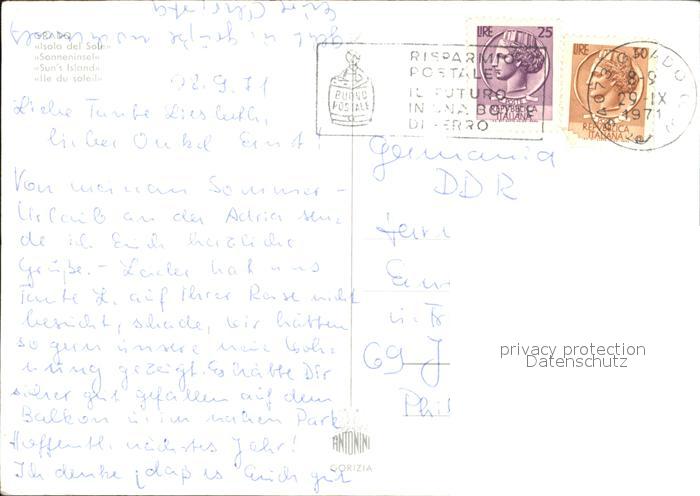 GRADO
«Isola del Sole»
«Sonneninsel»
«Sun's Island»
«Ile du soleil»
28.9.71
Liebe Tante Lieselotte,
lieber Onkel Ernst!
Von meinem Sommer-
Urlaub an der Adria sen-
de ich Euch herzliche
Grüße. - Leider hat uns
Tante L. auf Ihrer Reise nicht
besucht, schade, wir hätten
so gern unsere neue Woh-
nung gezeigt. Es hätte Dir
sicher gut gefallen auf dem
Balkon u. im nahen Park
Hoffentl. nächstes Jahr!
Ich denke, daß es Euch gut
geht u. grüße nochmals
Eure Christa
RISPARMIO
POSTALE
IL FUTURO
IN UNA BOTTE
DI FERRO
BUONO
POSTALE
LIRE 25
REPUBBLICA
ITALIANA
LIRE 50
REPUBBLICA
ITALIANA
GRADO
8-9
29-IX
1971
Germania
DDR
Herr
Ern
u. Fr
69 J
Phil
privacy protection
Datenschutz
ANTONINI
GORIZIA